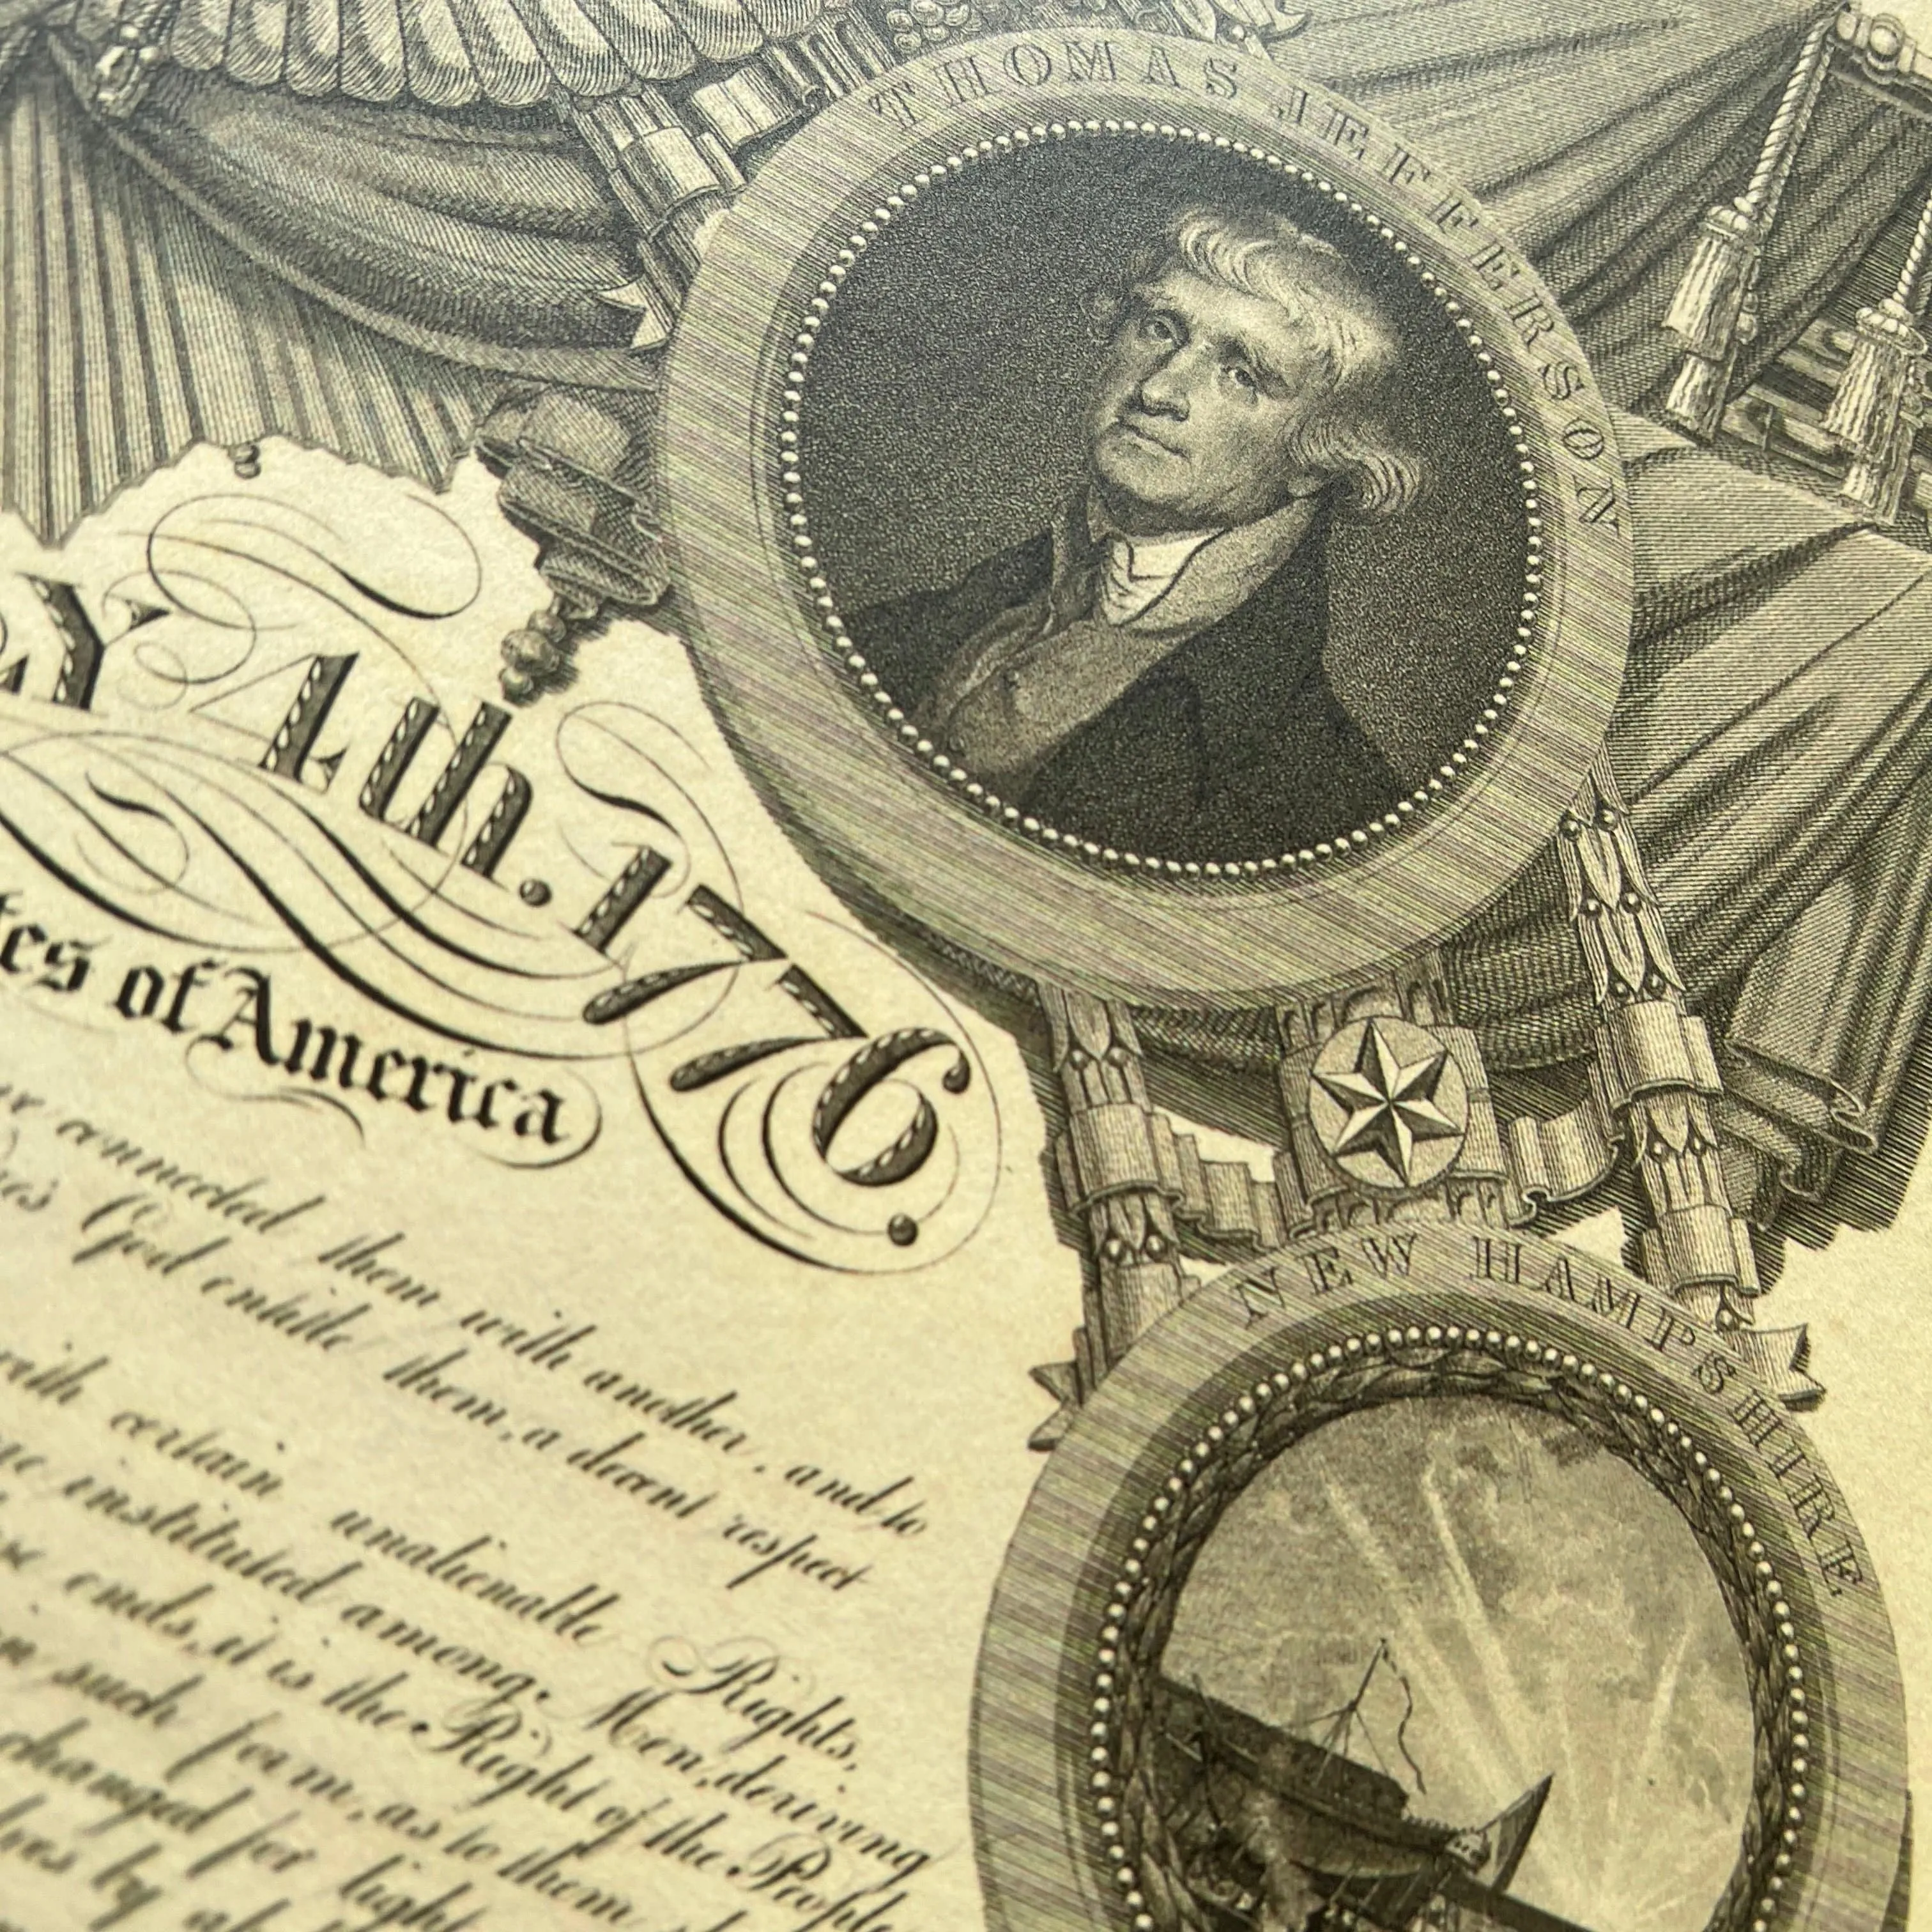 THOMAS JEFFERSON
Y 4th. 1776.
tes of America
connected them with another, and to
God entitle them, a decent respect
with certain unalienable Rights,
instituted among Men, deriving
ends, it is the Right of the People
such form, as to them
changed for light
by
NEW HAMPSHIRE